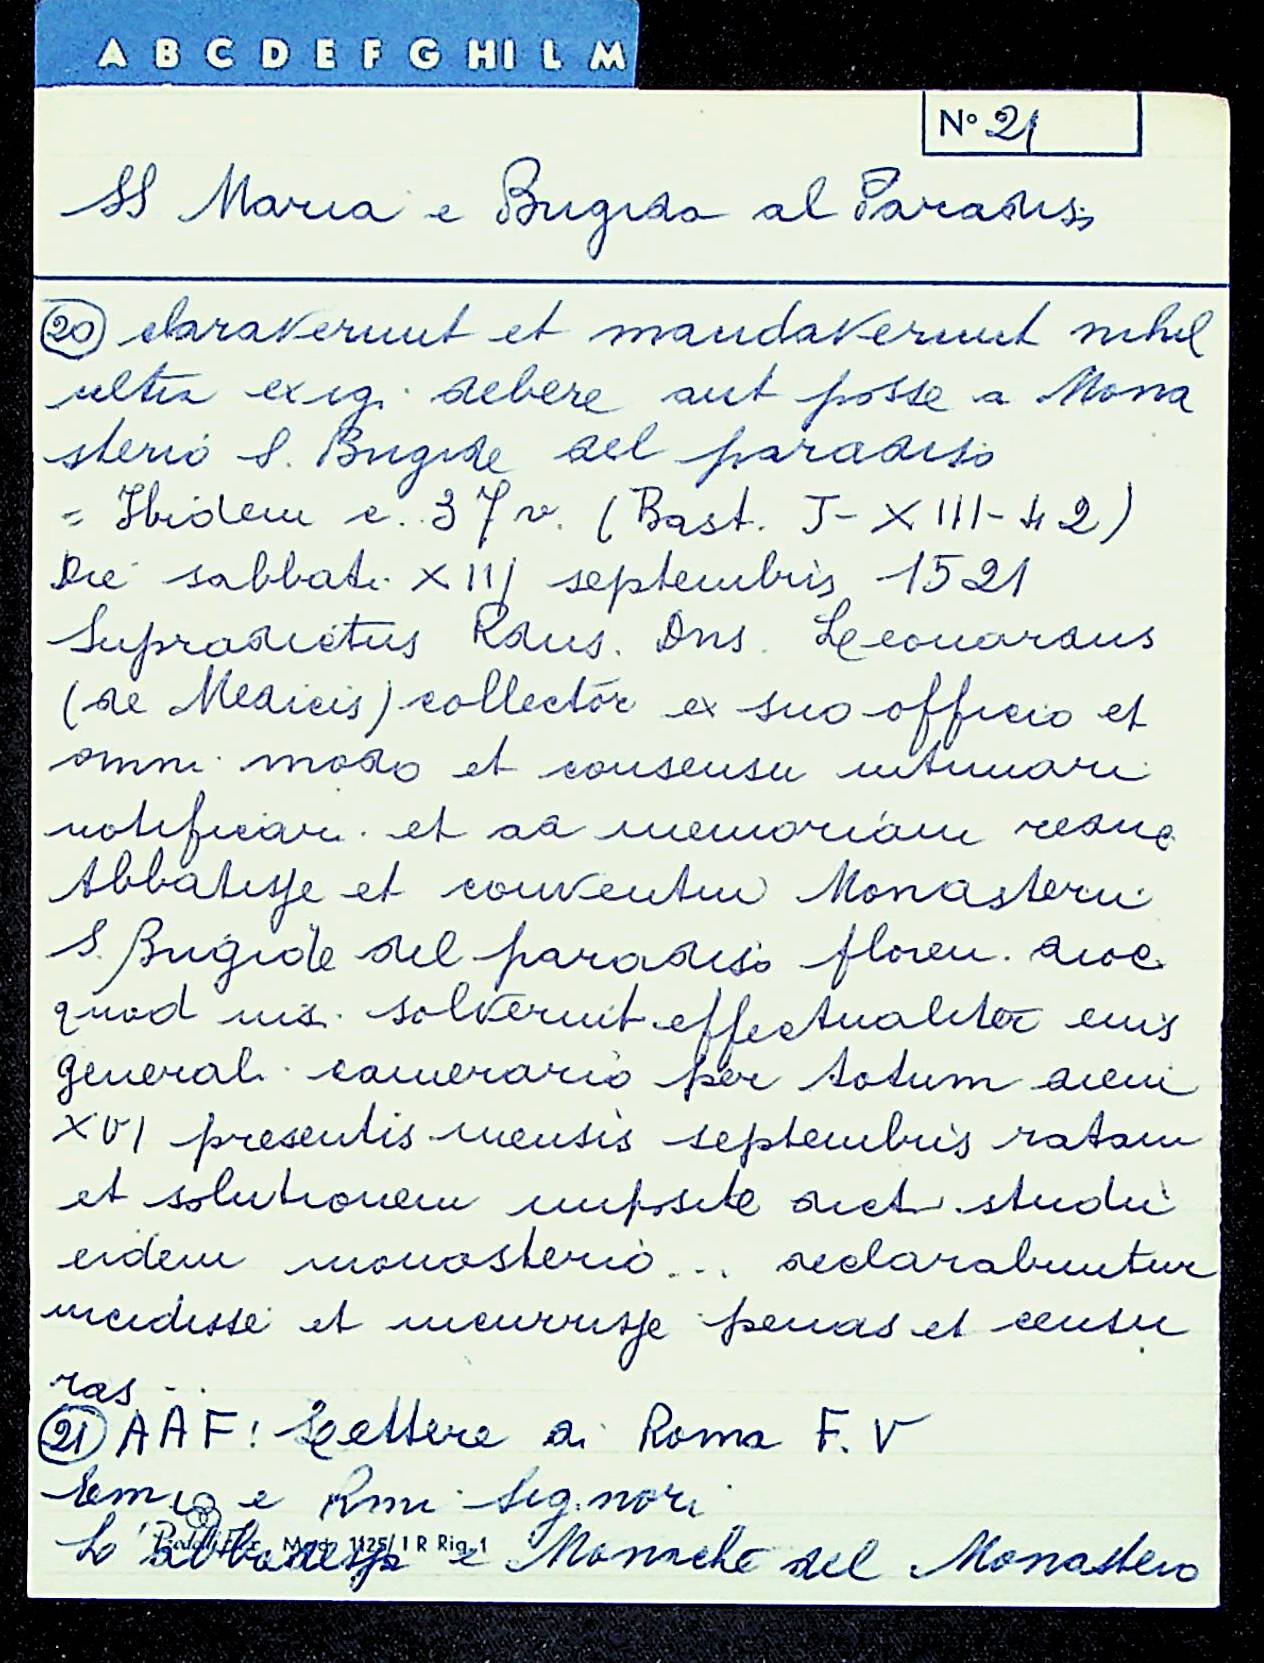 A B C D E F G HI L M
N° 21
SS Maria e Brigida al Paradiso
20 claraverunt et mandaverunt nihil
ultra exigi debere aut posse a Mona
sterio S. Brigide del paradiso
= Ibidem c. 37v. (Bast. J-XIII-42)
Die sabbati XIIJ septembris 1521
Supradictus Rdus. Dns. Leonardus
(de Medicis) collector ex suo officio et
omni modo et consensu intimari
notificari et ad memoriam
Abbatisse et conventui Monasterii
S. Brigide del paradiso floren. dioc.
quod nisi solverint effectualiter
generali camerario per totum diem
XVI presentis mensis septembris ratam
et solutionem imposite dicti studii
eidem monasterio... declarabuntur
incidisse et incurrisse penas et censu
ras...
21 AAF: Lettere di Roma F. V
Emi e Rmi Signori
L'abbadessa e Monache del Monastero
Mod. 1125/1 R Rig. 1